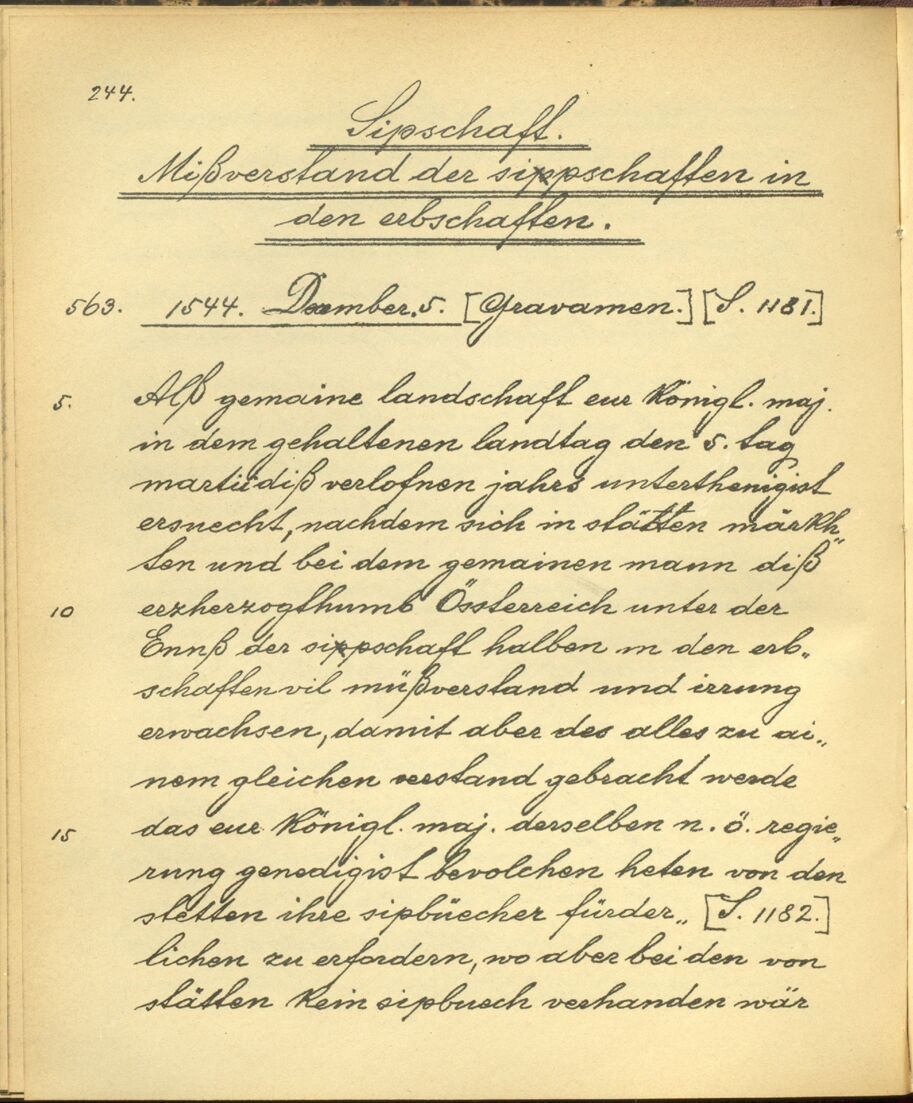 244.
Sipschaft.
Mißverstand der sippschaften in
den erbschaften.
563. 1544. Dezember. 5. [Gravamen.] [S. 1181.]
5. Alß gemaine landschaft eur Königl. maj.
in dem gehaltenen landtag den 5. tag
martii diß verlofnen jahrs unterthenigist
ersuecht, nachdem sich in stätten märkh„
ten und bei dem gemainen mann diß
10 erzherzogthumb Össterreich unter der
Ennß der sippschaft halben in den erb„
schaften vil müßverstand und irrung
erwachsen, damit aber des alles zu ai„
nem gleichen verstand gebracht werde
15 das eur Königl. maj. derselben n. ö. regie„
rung genedigist bevolchen heten von den
stetten ihre sipbüecher fürder„ [S. 1182.]
lichen zu erfordern, wo aber bei den von
stätten kein sipbuech verhanden wär